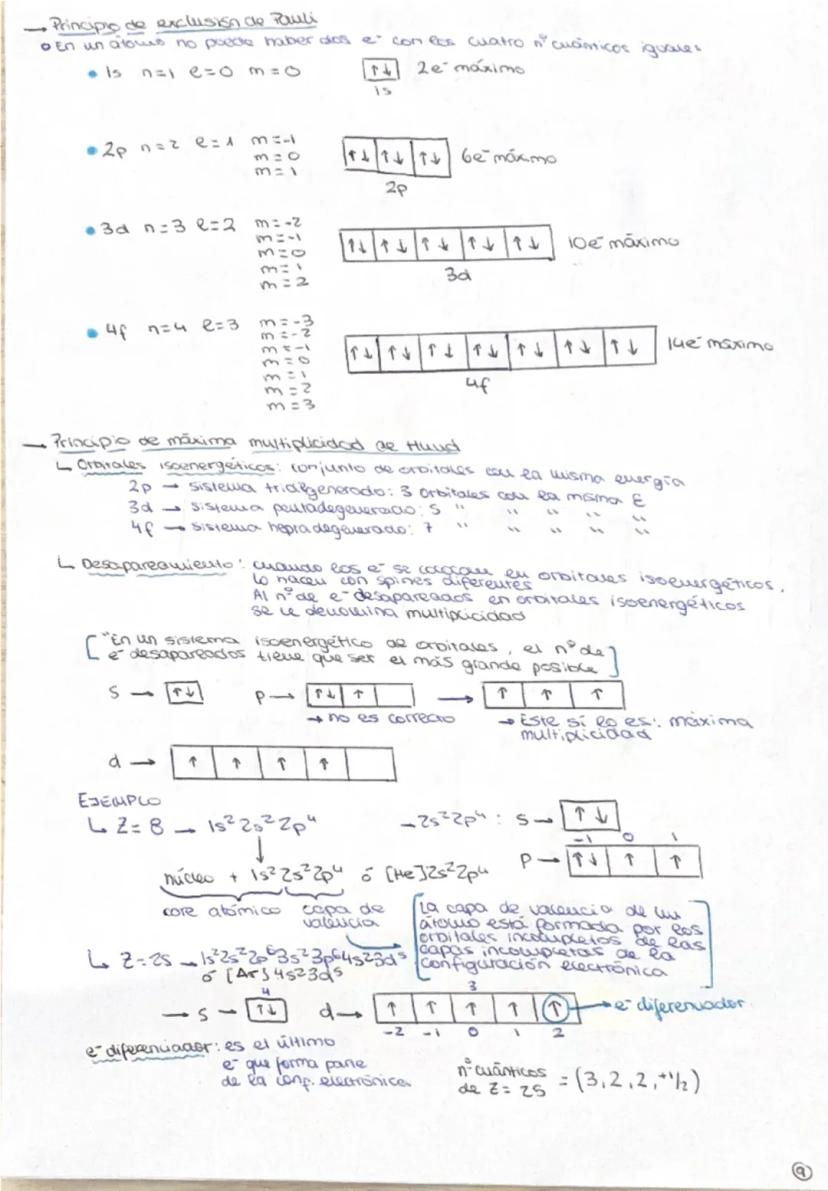 → Principio de exclusión de Pauli
En un átomo no puede haber dos e⁻ con los cuatro nº cuánticos iguales
• 1s n=1 l=0 m=0 ↑↓ 2e⁻ máximo
1s
• 2p n=2 l=1 m=-1
m=0
m=1
↑↓ ↑↓ ↑↓ 6e⁻ máximo
2p
• 3d n=3 l=2 m=-2
m=-1
m=0
m=1
m=2
↑↓ ↑↓ ↑↓ ↑↓ ↑↓ 10e⁻ máximo
3d
• 4f n=4 l=3 m=-3
m=-2
m=-1
m=0
m=1
m=2
m=3
↑↓ ↑↓ ↑↓ ↑↓ ↑↓ ↑↓ ↑↓ 14e⁻ máximo
4f
→ Principio de máxima multiplicidad de Hund
↳ Orbitales isoenergéticos: conjunto de orbitales con la misma energía
2p → sistema tridegenerado: 3 orbitales con la misma E
3d → sistema pentadegenerado: 5 " " " " "
4f → sistema hepradegenerado: 7 " " " " "
↳ Desapareamiento: cuando los e⁻ se colocan en orbitales isoenergéticos,
lo hacen con spines diferentes
Al nº de e⁻ desapareados en orbitales isoenergéticos
se le denomina multiplicidad
["En un sistema isoenergético de orbitales, el nº de
e⁻ desapareados tiene que ser el más grande posible]
S → ↑↓ P → ↑↓ ↑ → ↑ ↑ ↑
→ no es correcto → Este sí lo es: máxima
multiplicidad
d → ↑ ↑ ↑ ↑
EJEMPLO
↳ Z=8 → 1s² 2s² 2p⁴ → 2s² 2p⁴: S → ↑↓
-1 0 1
P → ↑↓ ↑ ↑
núcleo + 1s² 2s² 2p⁴ ó [He] 2s² 2p⁴
core atómico capa de
valencia
[La capa de valencia de un
átomo está formada por los
orbitales incompletos de las
capas incompletas de la
configuración electrónica]
↳ Z=25 → 1s² 2s² 2p⁶ 3s² 3p⁶ 4s² 3d⁵
ó [Ar] 4s² 3d⁵
4 3
→ S → ↑↓ d → ↑ ↑ ↑ ↑ ↑ → e⁻ diferenciador
-2 -1 0 1 2
e⁻ diferenciador: es el último
e⁻ que forma parte
de la conf. electrónica
nº cuánticos
de Z=25 = (3, 2, 2, +1/2)
9